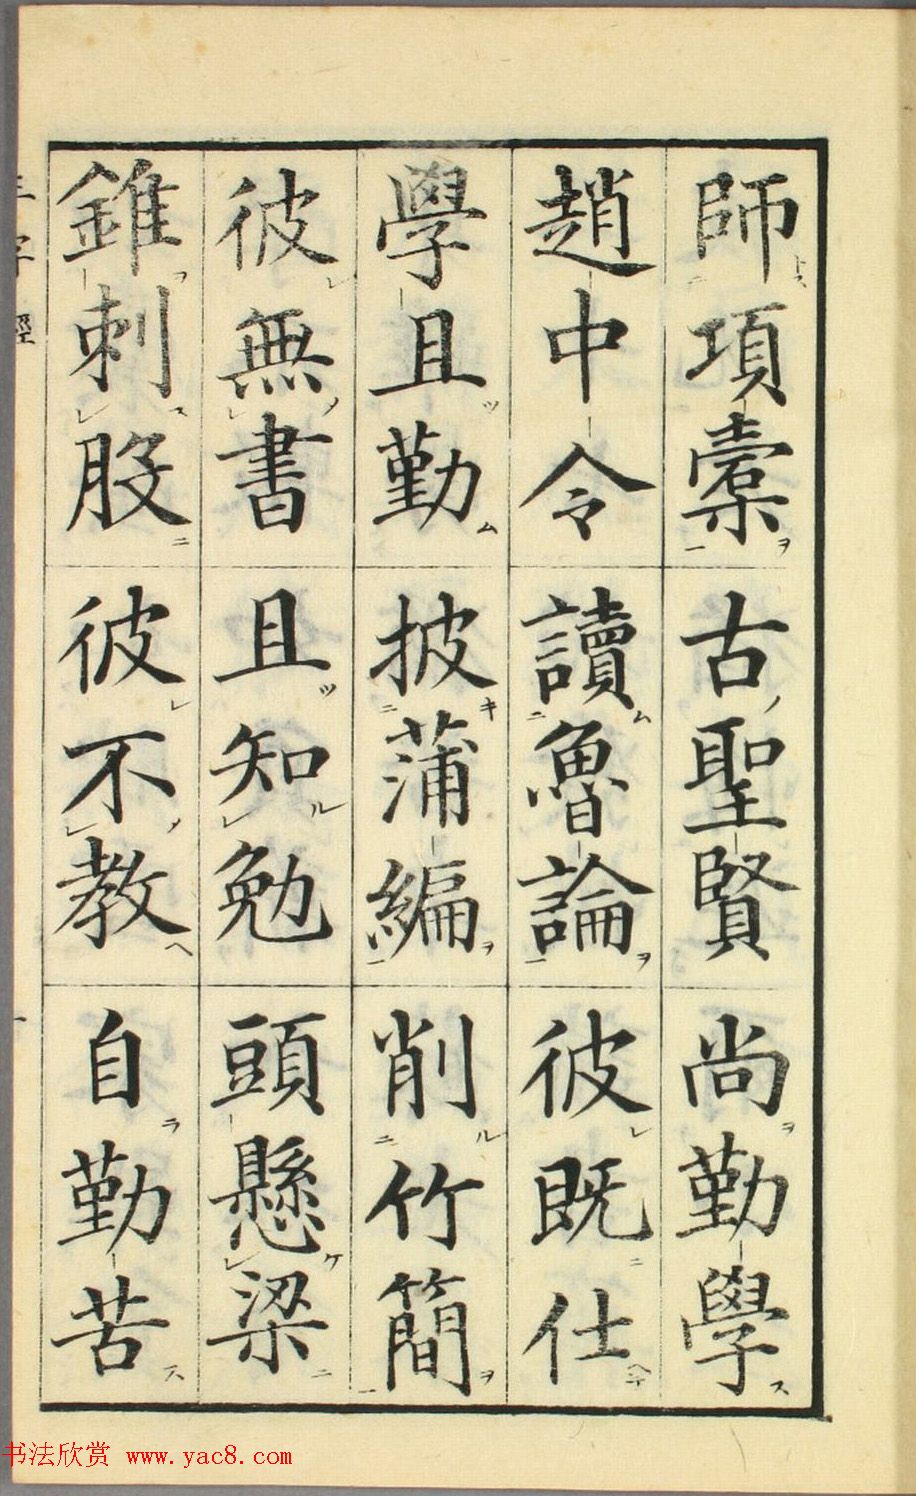 師項橐古聖賢尚勤學
趙中令讀魯論彼既仕
學且勤披蒲編削竹簡
彼無書且知勉頭懸梁
錐刺股彼不教自勤苦
三字經
书法欣赏 www.yac8.com